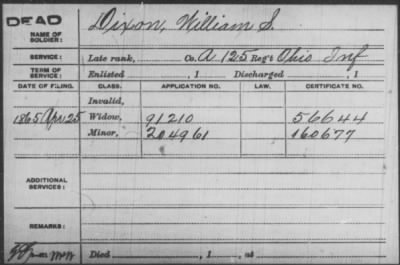 DEAD
NAME OF SOLDIER: Dixon, William S.
SERVICE: Late rank, Co. A 125 Reg't Ohio Inf
TERM OF SERVICE: Enlisted , 1 Discharged , 1
DATE OF FILING. CLASS. APPLICATION NO. LAW. CERTIFICATE NO.
Invalid,
1865 Apr 25 Widow, 91210 56644
Minor, 204961 160677
ADDITIONAL SERVICES:
REMARKS:
Died , 1 , at